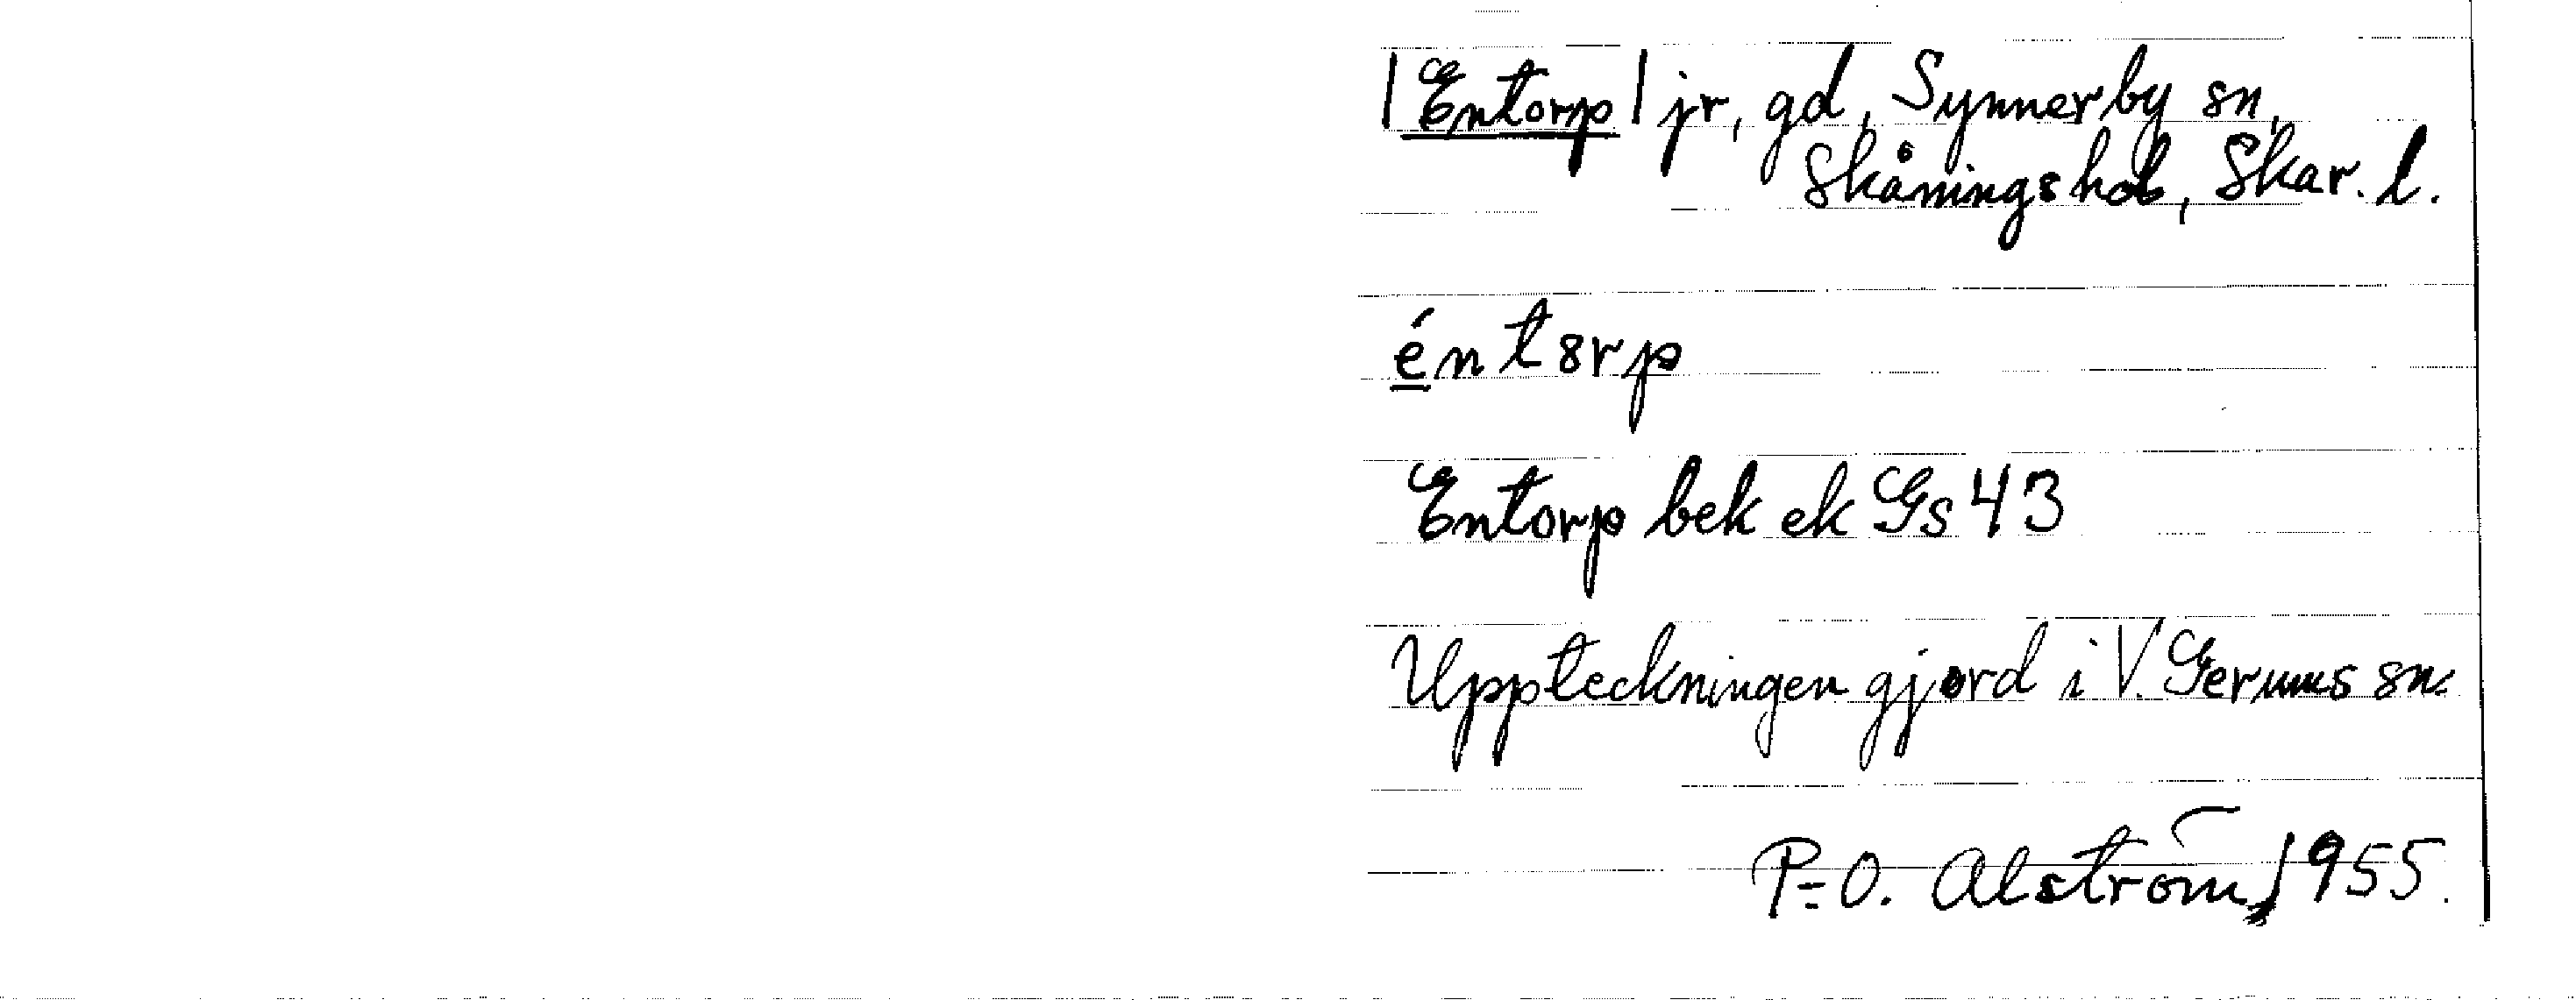 |Entorp| jr, gd, Synnerby sn,
Skånings hd, Skar. l.
éntȣrp
Entorp bek ek Gs 43
Uppteckningen gjord i V. Gerums sn.
P-O. Alström, 1955.